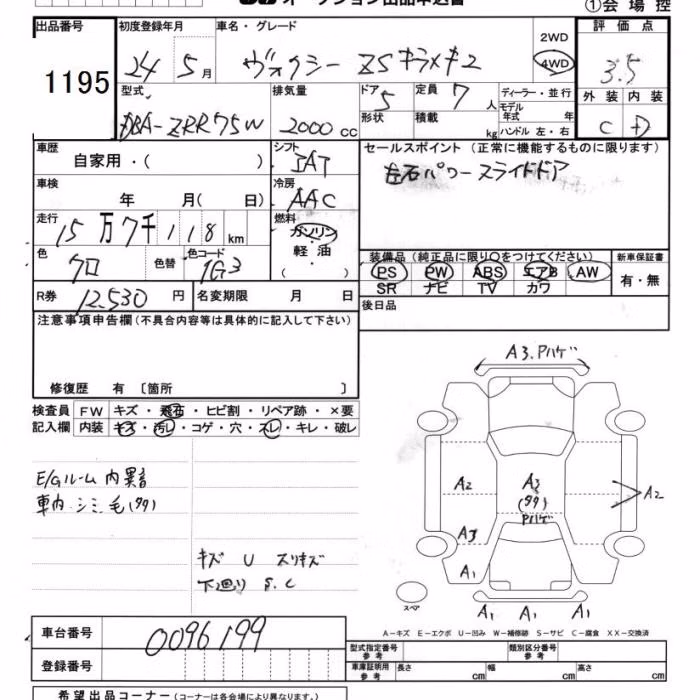 オークション出品申込書
①会場控
出品番号
1195
初度登録年月
24 5月
車名・グレード
ヴォクシー ZSキラメキ2
2WD
4WD
評価点
3.5
外装 内装
C D
型式
DBA-ZRR75W
排気量
2000 cc
ドア
5
形状
定員
7人
積載
kg
ディーラー・並行
モデル年式 年
ハンドル 左・右
車歴
自家用・( )
シフト
IAT
セールスポイント(正常に機能するものに限ります)
左右パワースライドドア
車検
年 月(日)
冷房
AAC
走行
15万7千118km
燃料
ガソリン
軽・油
( )
色
クロ
色替
色コード
1G3
装備品(純正品に限り〇をつけてください)
PS PW ABS エアB AW
SR ナビ TV カワ
新車保証書
有・無
R券 12,530円
名変期限 月 日
後日品
注意事項申告欄(不具合内容等は具体的に記入して下さい)
修復歴 有〔箇所 〕
検査員 FW キズ・飛石・ヒビ割・リペア跡・×要
記入欄 内装 キズ・汚レ・コゲ・穴・スレ・キレ・破レ
E/Gルーム内異音
車内シミ、毛(タタ)
キズ U スリキズ
下廻り S.C
A3.Pハゲ
A2
A3
(タタ)
Pハゲ
A2
A3
A1
スペア
A1 A1 A1
A-キズ E-エクボ U-凹み W-補修跡 S-サビ C-腐食 XX-交換済
車台番号 0096199
登録番号
型式指定番号 参考
類別区分番号 参考
車庫証明用 参考
長さ cm 幅 cm 高さ cm
希望出品コーナー(コーナーは各会場により異なります。)